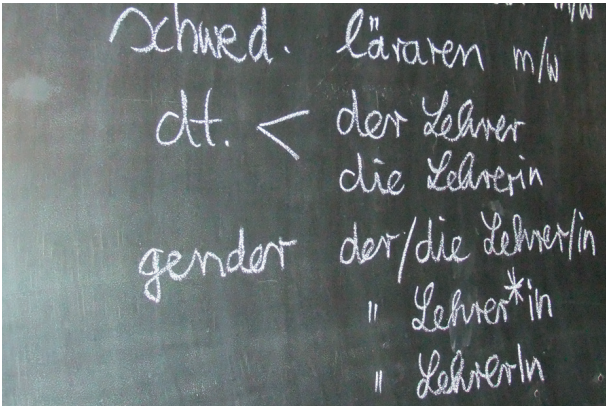 m/w
schwed. läraren m/w
dt. < der Lehrer
die Lehrerin
gender der/die Lehrer/in
" Lehrer*in
" LehrerIn